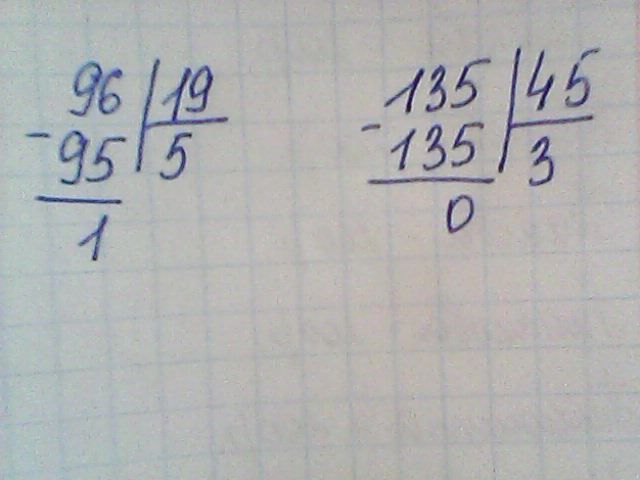 96 19
- 95 5
1
135 45
- 135 3
0